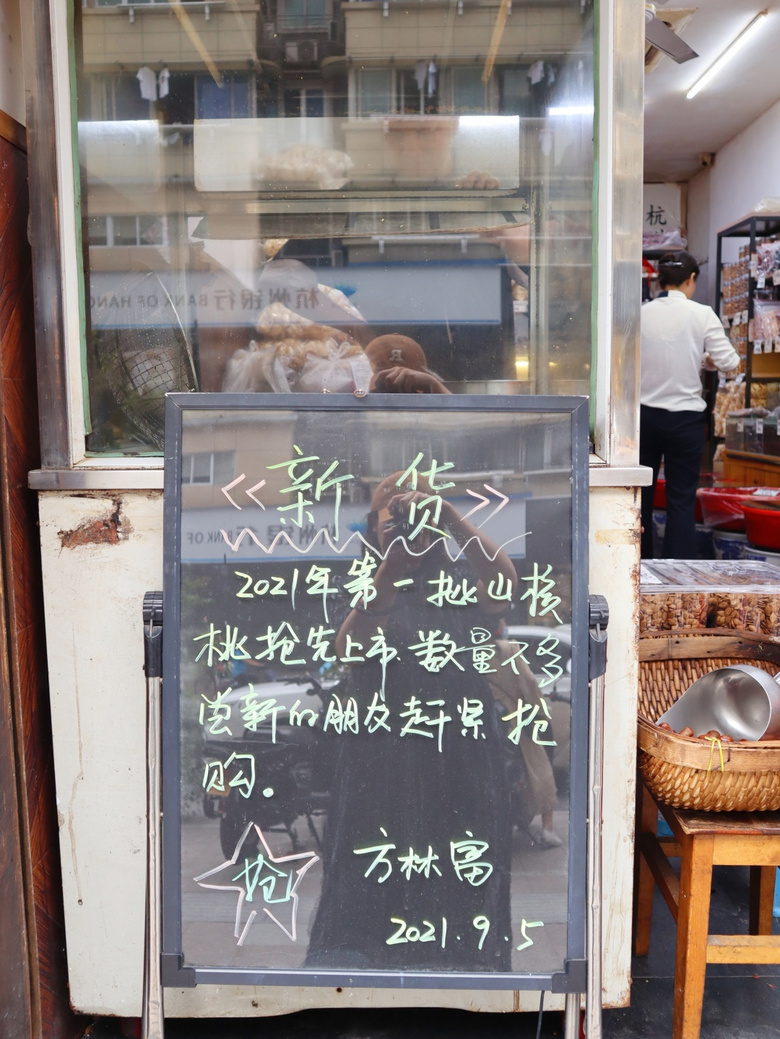 杭
杭州银行 BANK OF HANG
《新 货》
杭州银行 BANK OF
2021年第一批山核
桃抢先上市.数量不多
尝新的朋友赶紧抢
购。
抢
方林富
2021.9.5